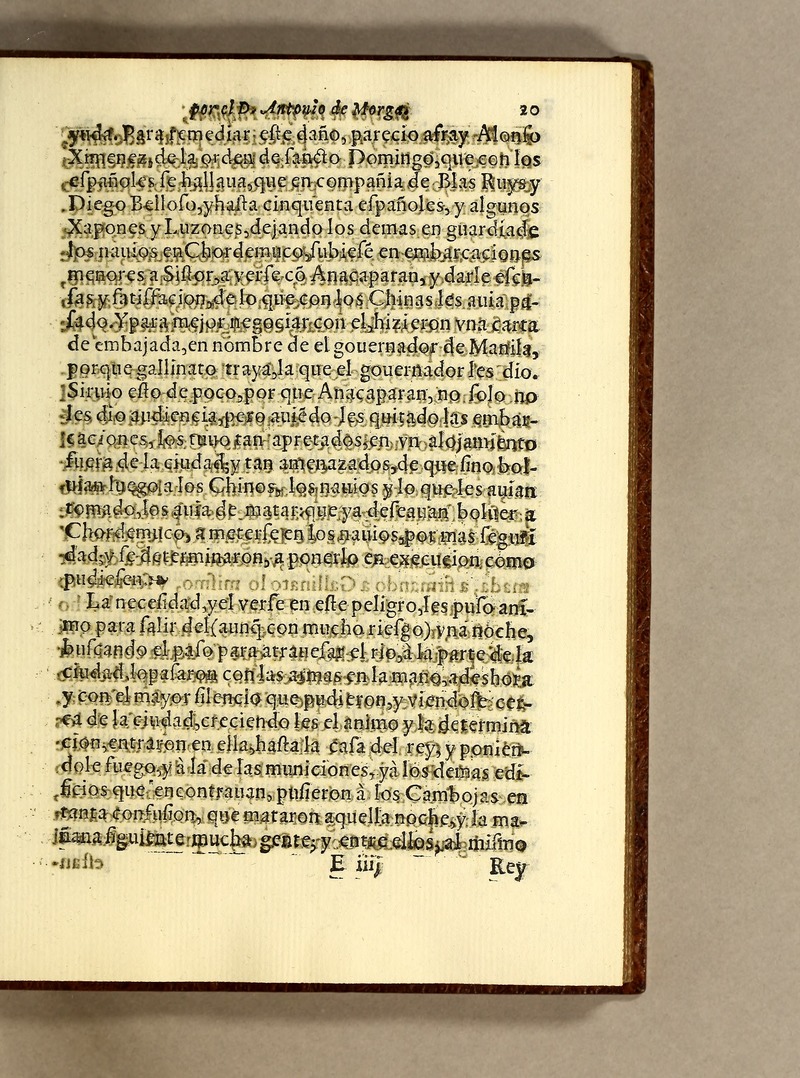 por el D. Antonio de Morga. 20
yuda. Para remediar este daño, parecio a fray Alonso
Ximenez, de la orden de sancto Domingo, que con los
españoles se hallaua, que en compañia de Blas Ruys y
Diego Belloso, y hasta cinquenta españoles, y algunos
Xapones y Luzones, dejando los demas en guardia de
los nauios en Chordemuco, subiese en embarcaciones
menores a Sistor, a verse cō Anacaparan, y darle escu-
sas y satisfacion, de lo que con los Chinas les auia pa-
sado. Y para mejor negociar con el, hizieron vna carta
de embajada, en nombre de el gouernador de Manila,
porque gallinato traya, la que el gouernador les dio.
Siruio esto de poco, por que Anacaparan, no solo no
les dio audiencia, pero auiēdo les quitado las embar-
caciones, los tuuo tan apretados, en vn alojamiento
fuera de la ciudad, y tan amenazados, de que sino bol-
uian luego a los Chinos, los nauios y lo que les auian
tomado, los auia de matar, que ya deseauan boluer a
Chordemuco, a meterse en los nauios, por mas seguri
dad, y se determinaron, a ponerlo en execucion como
pudiesen.
La necesidad, y el verse en este peligro, les puso ani-
mo para salir del (aunq̃ con mucho riesgo) vna noche,
buscando el paso para atrauesar el rio, à la parte de la
ciudad, lo pasaron con las armas en la mano, a deshora
y con el mayor silencio que pudieron, y viendose cer-
ca de la ciudad, creciendo les el animo y la determina
cion, entraron en ella, hasta la casa del rey, y ponien-
dole fuego, y à la de las municiones, y à los demas edi-
ficios que encontrauan, pusieron à los Cambojas en
tanta confusion, que mataron aquella noche, y la ma-
ñana siguiente mucha gente, y entre ellos, al mismo
E iiij Rey